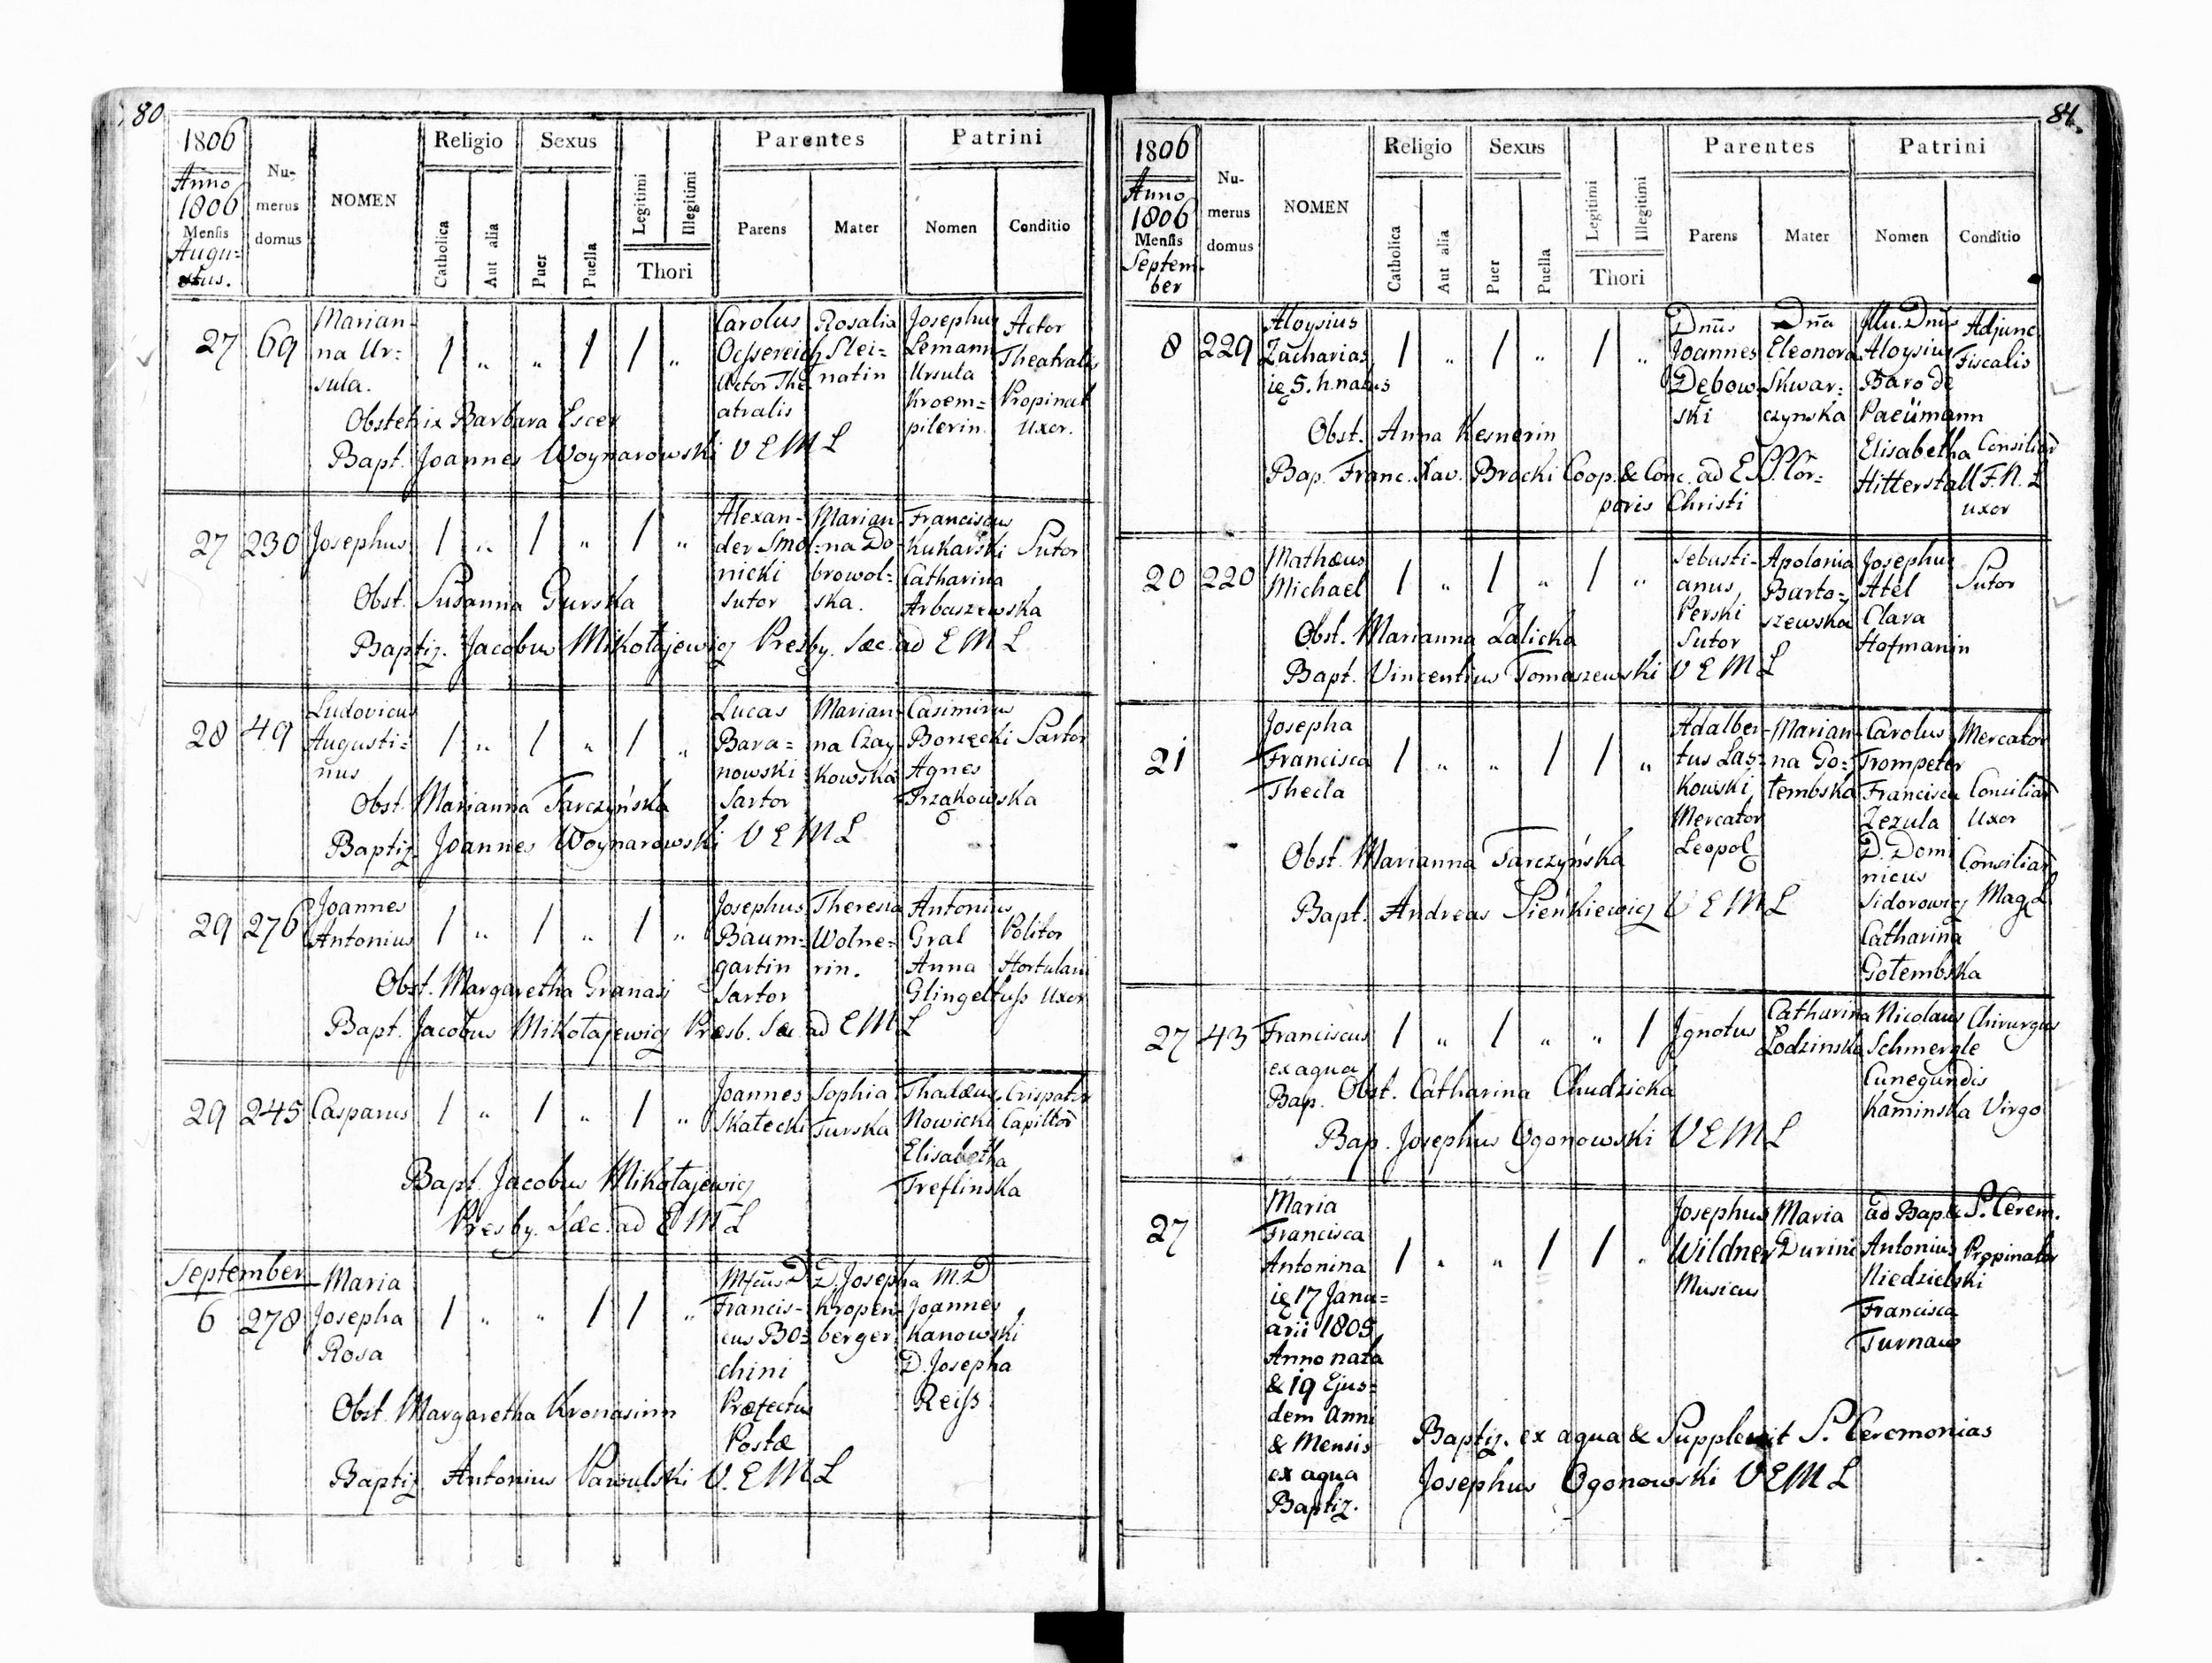 80
1806
Anno
1806
Mensis
Augu=
stus.
Nu-
merus
domus
NOMEN
Religio
Catholica
Aut alia
Sexus
Puer
Puella
Legitimi
Illegitimi
Thori
Parentes
Parens
Mater
Patrini
Nomen
Conditio
27 69 Marian=
na Ur=
sula.
/ " " / / "
Carolus
Actor The
atralis
Rosalia
Slei=
natin
Josephus
Lemann
Ursula
Kroem=
pilerin
Actor
Theatralis
Propinat
Uxor.
Obstetrix Barbara Escer
Bapt. Joannes Woynarowski V E M L
27 230 Josephus / " / " / "
Alexan-
der Smol=
nicki
Sutor
Marian
na Do-
browol=
ska.
Franciscus
Kukarski
Catharina
Arbaszewska
Sutor
Obst. Susanna Gurska
Baptiz. Jacobus Mikołajewicz Presby. Sæc. ad E M L
28 49 Ludovicus
Augusti=
nus
/ " / " / "
Lucas
Bara=
nowski
Sartor
Marian
na Czay
kowska
Casimirus
Borzęcki
Agnes
Trzakowska
Sartor
Obst. Marianna Tarczyńska
Baptiz. Joannes Woynarowski V E M L
29 276 Joannes
Antonius
/ " / " / "
Josephus
Baum=
gartin
Sartor
Theresia
Wolne=
rin.
Antonius
Gral
Anna
Glingelfuss
Politor
Hortulani
Uxor
Obst. Margaretha Granasi
Bapt. Jacobus Mikołajewicz Presb. Sæc. ad E M L
29 245 Casparus / " / " / "
Joannes
Skałecki
Sophia
Turska
Thadæus
Nowicki
Elisabetha
Treflinska
Crispator
Capillor
Bapt. Jacobus Mikołajewicz
Presby. Sæc. ad E M L
September
6 278 Maria
Josepha
Rosa
/ " " / / "
Francis-
cus Bo=
chini
Præfectus
Postæ
D. Josepha
Kropen=
berger.
M. D
Joannes
Kanowski
D. Josepha
Reiss
Obst. Margaretha Kronasinn
Baptiz. Antonius Pawulski V. E M L
84.
1806
Anno
1806
Mensis
Septem-
ber
Nu-
merus
domus
NOMEN
Religio
Catholica
Aut alia
Sexus
Puer
Puella
Legitimi
Illegitimi
Thori
Parentes
Parens
Mater
Patrini
Nomen
Conditio
8 229 Aloysius
Zacharias
ię 5. h. natus
/ " / " / "
Dnus
Joannes
Dębow
ski
Dna
Eleonora
Skwar=
czynska
Illu. Dnus
Aloysius
Baro de
Paeümann
Elisabetha
Hitterstall
Adjunc
Fiscalis
Consiliar
F. N. L
uxor
Obst. Anna Kesnerin
Bap. Franc. Xav. Brocki Coop. & Conc. ad E. S. Cor=
poris Christi
20 220 Mathæus
Michael
/ " / " / "
Sebasti-
anus
Perski
Sutor
Apolonia
Barto=
szewska
Josephus
Atel
Clara
Hofmanin
Sutor
Obst. Marianna Zalicka
Bapt. Vincentius Tomaszewski V E M L
21 Josepha
Francisca
Thecla
/ " " / / "
Adalber-
tus Las=
kowski
Mercator
Leopol
Marian-
na Go=
łembska
Carolus
Trompeter
Francisca
Zezula
D. Domi
nicus
Sidorowicz
Catharina
Gołembska
Mercator
Consiliar
Uxor
Consiliar
Mag. L
Obst. Marianna Tarczyńska
Bapt. Andreas Sieńkiewicz V E M L
27 43 Franciscus
ex aqua
Bap.
/ " / " " /
Ignotus
Catharina
Łodzinska
Nicolaus
Schmergle
Cunegundis
Kaminska
Chirurgus
Virgo
Obst. Catharina Chudzicka
Bap. Josephus Ogonowski V E M L
27 Maria
Francisca
Antonina
ię 17 Janu=
arii 1805
Anno nata
& 19 Ejus=
dem Anni
& Mensis
ex aqua
Baptiz.
/ " " / / "
Josephus
Wildner
Musicus
Maria
Durini
ad Bap. & S. Cerem.
Antonius
Niedzielski
Francisca
Turnau
Propinator
Baptiz. ex aqua & Supplevit S. Ceremonias
Josephus Ogonowski V E M L